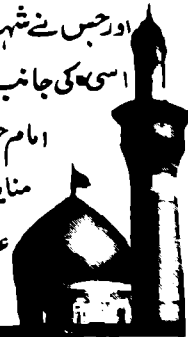 اور جس نے شہ
اسی کی جانب
امام ح
منا
ع